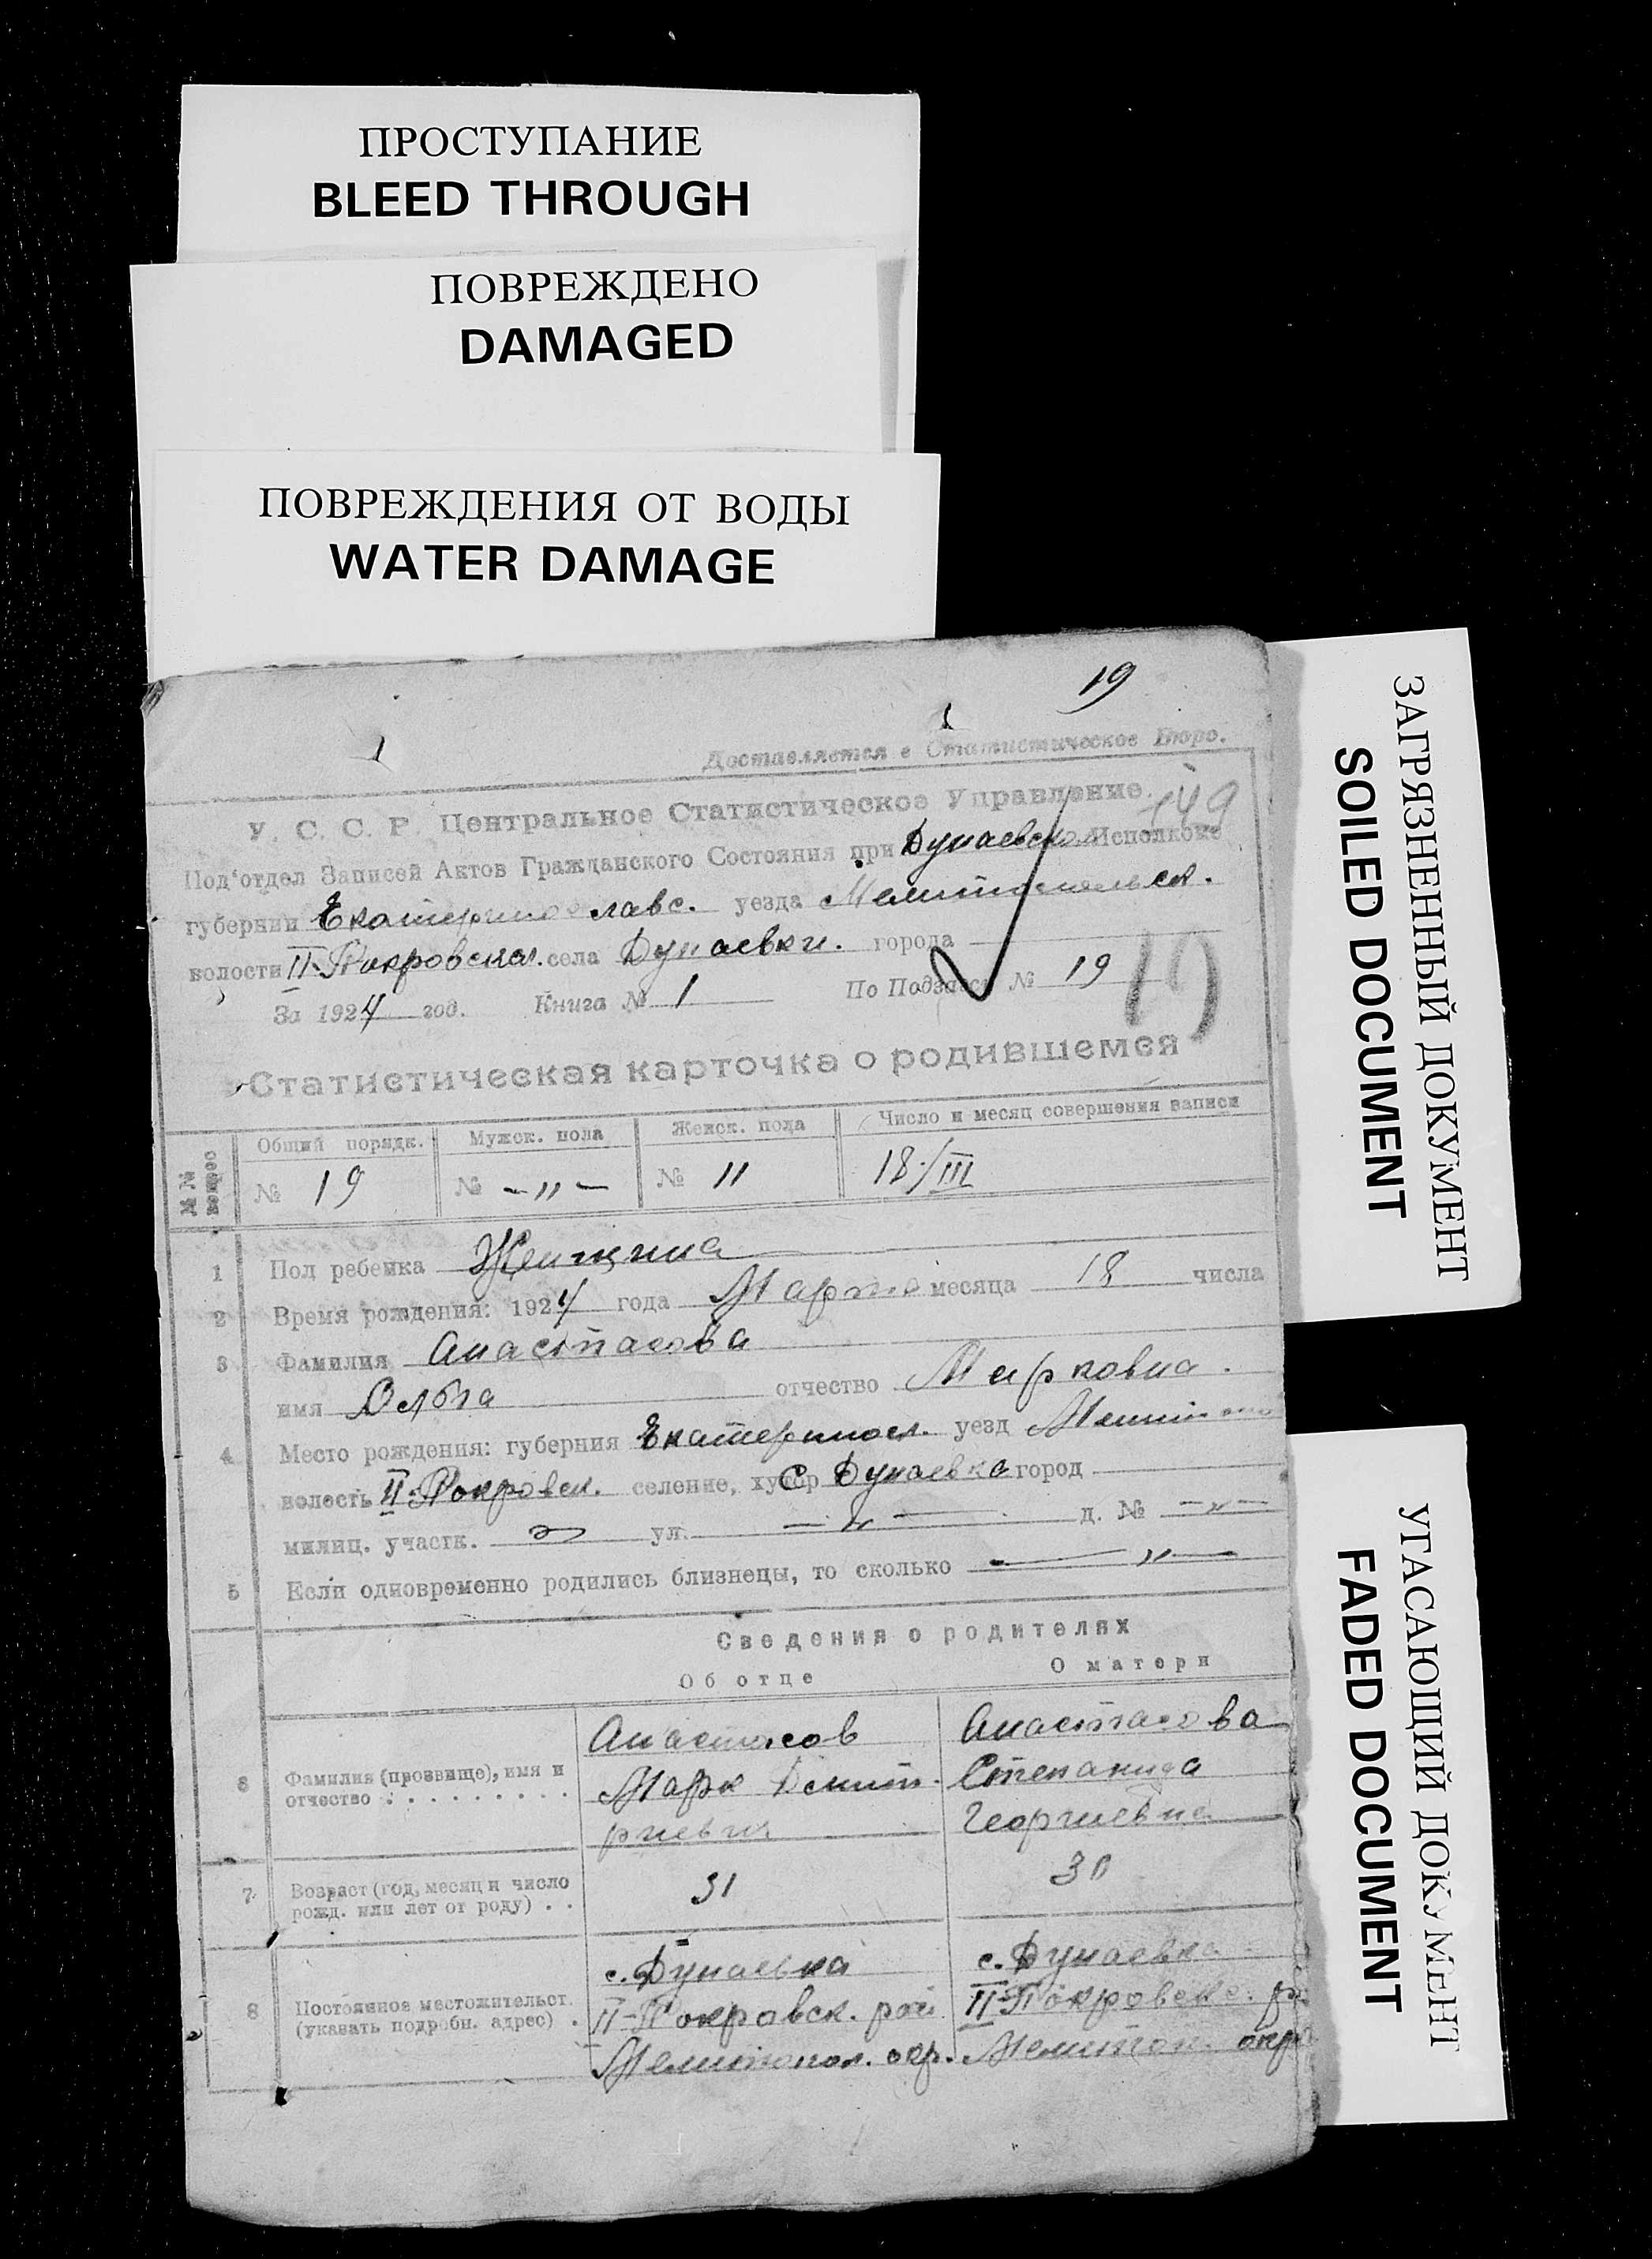 ПРОСТУПАНИЕ
BLEED THROUGH
ПОВРЕЖДЕНО
DAMAGED
ПОВРЕЖДЕНИЯ ОТ ВОДЫ
WATER DAMAGE
ЗАГРЯЗНЕННЫЙ ДОКУМЕНТ
SOILED DOCUMENT
УГАСАЮЩИЙ ДОКУМЕНТ
FADED DOCUMENT
19
Доставляется в Статистическое Бюро.
У. С. С. Р. Центральное Статистическое Управление.
149
Под'отдел Записей Актов Гражданского Состояния при Дунаевском Исполкоме
губернии Екатеринославс. уезда Мелитопольск.
волости II-Покровская. села Дунаевки. города
За 1924 год. Книга № 1 По Подзагсу № 19
19
Статистическая карточка о родившемся
№№ вопрос Общий порядк. Мужск. пола Женск. пола Число и месяц совершения записи
№ 19 № -"- № 11 18/III
1 Пол ребенка Женщина
2 Время рождения: 1924 года Марта месяца 18 числа
3 Фамилия Анастасова
имя Ольга отчество Марковна.
4 Место рождения: губерния Екатериносл. уезд Мелитопо
волость II-Покровск. селение, хутор С Дунаевка город
милиц. участк. ул. -"- д. № -"-
5 Если одновременно родились близнецы, то сколько -"-
Сведения о родителях
Об отце О матери
Анастасов Анастасова
6 Фамилия (прозвище), имя и Марк Дмит. Степанида
отчество . . . . . . . . . риевич Георгиевна
7 Возраст (год, месяц и число 31 30
рожд. или лет от роду) . .
с. Дунаевка с. Дунаевка
8 Постоянное местожительст. II-Покровск. рай II-Покровско. ра
(указать подробн. адрес) .
Мелитопол. окр. Мелитоп. окр